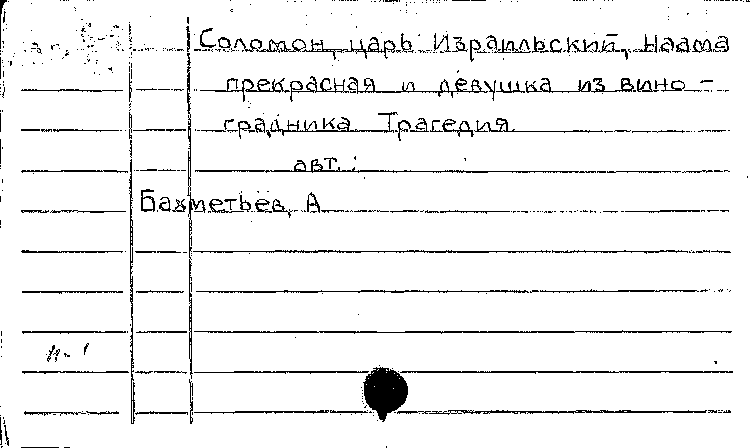 Соломон, царь Израильский, Наама
прекрасная и девушка из вино-
градника Трагедия.
авт.:
Бахметьев, А